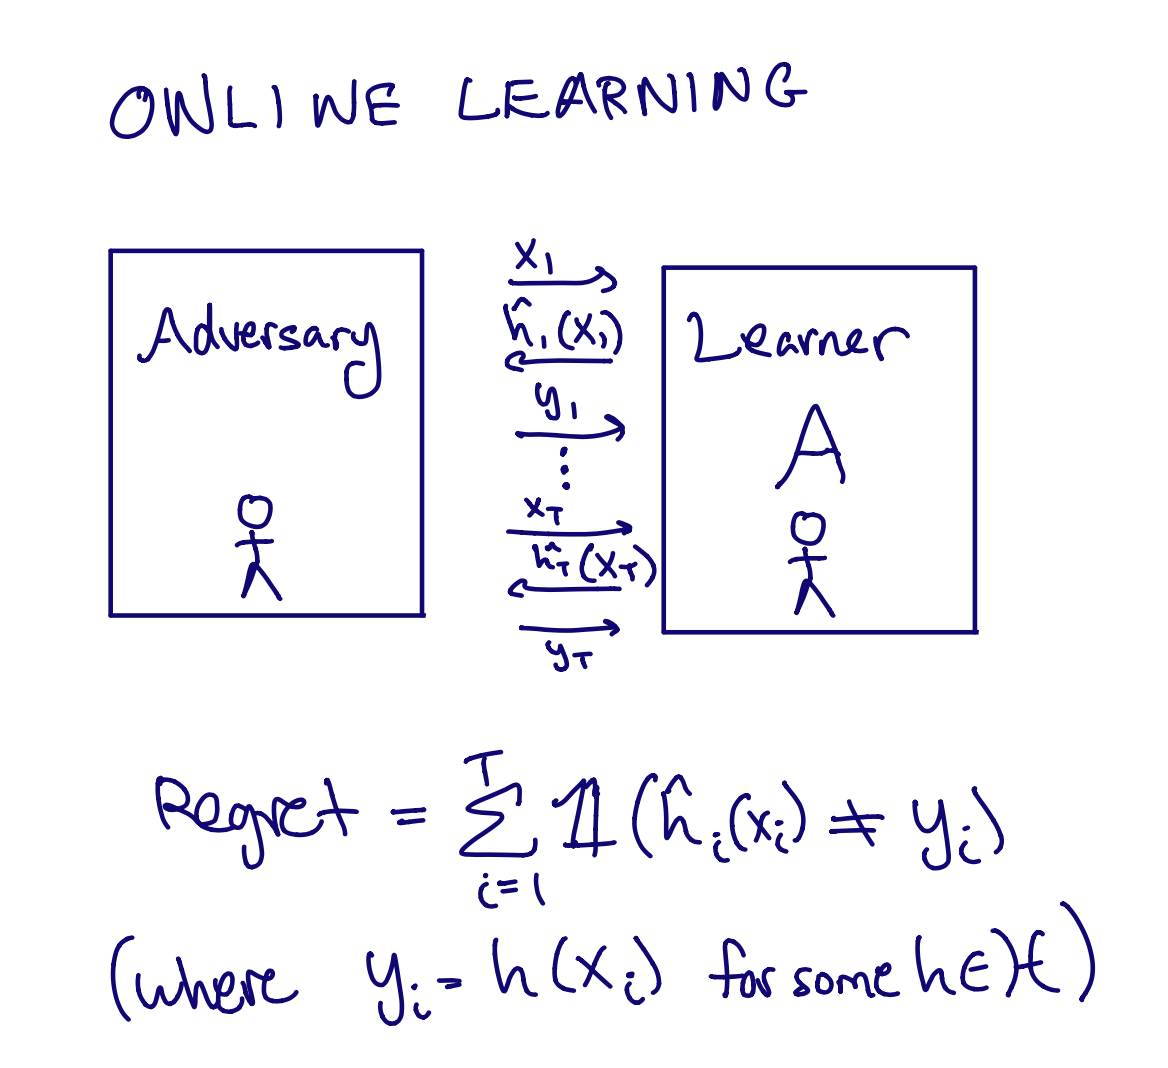 ONLINE LEARNING
Adversary
x₁
ĥ₁(x₁)
y₁
⋮
x_T
ĥ_T(x_T)
y_T
Learner
A
Regret = ∑_{i=1}^{T} 𝟙(ĥ_i(x_i) ≠ y_i)
(where y_i = h(x_i) for some h ∈ ℋ)